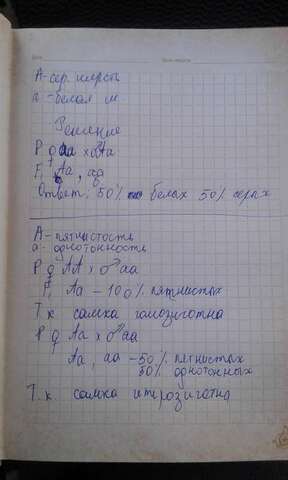 А - сер. шерсть
а - белая ш
Решение
Р ♀ аа х ♂ Аа
F₁ Аа, аа
Ответ: 50% белых 50% серых
А - пятнистость
а - однотонность
Р ♀ АА х ♂ аа
F₁ Аа - 100% пятнистых
Т.к самка гомозиготна
Р ♀ Аа х ♂ аа
Аа, аа - 50% пятнистых
50% однотонных
Т.к самка гетерозиготна